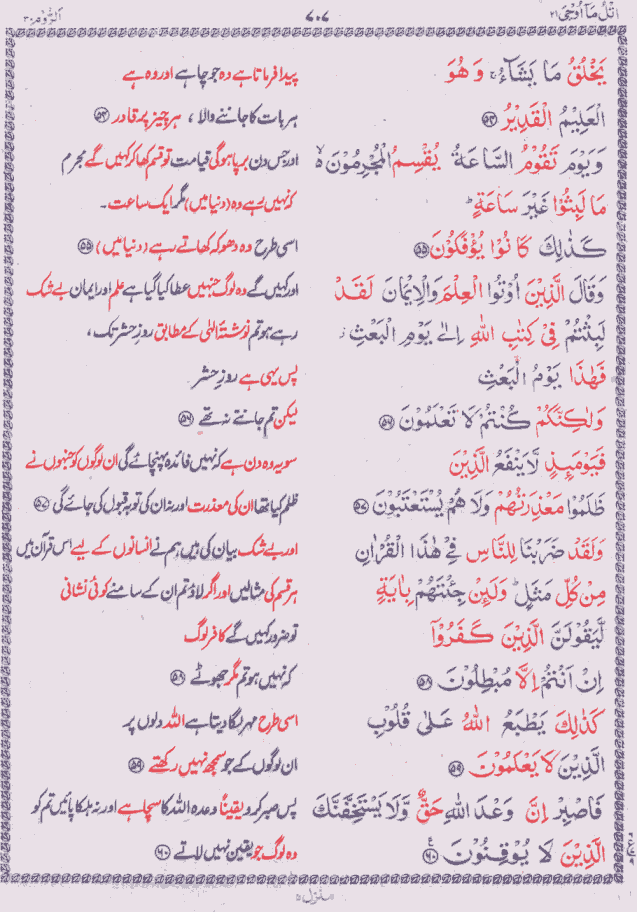 اتل ما اوحی ۲۱ ۷۰۷ الروم ۳۰
يَخْلُقُ مَا يَشَآءُ ۚ وَهُوَ پیدا فرماتا ہے وہ جو چاہے اور وہ ہے
الْعَلِيْمُ الْقَدِيْرُ ۝۵۴ ہر بات کا جاننے والا ، ہر چیز پر قادر ۝۵۴
وَيَوْمَ تَقُوْمُ السَّاعَةُ يُقْسِمُ الْمُجْرِمُوْنَ ۙ اور جس دن برپا ہوگی قیامت تو قسم کھا کر کہیں گے مجرم
مَا لَبِثُوْا غَيْرَ سَاعَةٍ ؕ کہ نہیں رہے وہ (دنیا میں) مگر ایک ساعت۔
كَذٰلِكَ كَانُوْا يُؤْفَكُوْنَ ۝۵۵ اسی طرح وہ دھوکہ کھاتے رہے (دنیا میں) ۝۵۵
وَقَالَ الَّذِيْنَ اُوْتُوا الْعِلْمَ وَالْاِيْمَانَ لَقَدْ اور کہیں گے وہ لوگ جنہیں عطا کیا گیا ہے علم اور ایمان بے شک
لَبِثْتُمْ فِيْ كِتٰبِ اللّٰهِ اِلٰى يَوْمِ الْبَعْثِ ؗ رہے ہو تم نوشتۂ الٰہی کے مطابق روزِ حشر تک،
فَهٰذَا يَوْمُ الْبَعْثِ پس یہی ہے روزِ حشر
وَلٰكِنَّكُمْ كُنْتُمْ لَا تَعْلَمُوْنَ ۝۵۶ لیکن تم جانتے نہ تھے ۝۵۶
فَيَوْمَئِذٍ لَّا يَنْفَعُ الَّذِيْنَ سو یہ وہ دن ہے کہ نہیں فائدہ پہنچائے گی ان لوگوں کو جنہوں نے
ظَلَمُوْا مَعْذِرَتُهُمْ وَلَا هُمْ يُسْتَعْتَبُوْنَ ۝۵۷ ظلم کیا تھا ان کی معذرت اور نہ ان کی توبہ قبول کی جائے گی ۝۵۷
وَلَقَدْ ضَرَبْنَا لِلنَّاسِ فِيْ هٰذَا الْقُرْاٰنِ اور بے شک بیان کی ہیں ہم نے انسانوں کے لیے اس قرآن میں
مِنْ كُلِّ مَثَلٍ ؕ وَلَئِنْ جِئْتَهُمْ بِاٰيَةٍ ہر قسم کی مثالیں اور اگر لاؤ تم ان کے سامنے کوئی نشانی
لَّيَقُوْلَنَّ الَّذِيْنَ كَفَرُوْٓا تو ضرور کہیں گے کافر لوگ
اِنْ اَنْتُمْ اِلَّا مُبْطِلُوْنَ ۝۵۸ کہ نہیں ہو تم مگر جھوٹے ۝۵۸
كَذٰلِكَ يَطْبَعُ اللّٰهُ عَلٰى قُلُوْبِ اسی طرح مہر لگا دیتا ہے اللہ دلوں پر
الَّذِيْنَ لَا يَعْلَمُوْنَ ۝۵۹ ان لوگوں کے جو سمجھ نہیں رکھتے ۝۵۹
فَاصْبِرْ اِنَّ وَعْدَ اللّٰهِ حَقٌّ وَّلَا يَسْتَخِفَّنَّكَ پس صبر کرو یقیناً وعدہ اللہ کا سچا ہے اور نہ ہلکا پائیں تم کو
الَّذِيْنَ لَا يُوْقِنُوْنَ ۝۶۰ وہ لوگ جو یقین نہیں لاتے ۝۶۰
منزل ۵